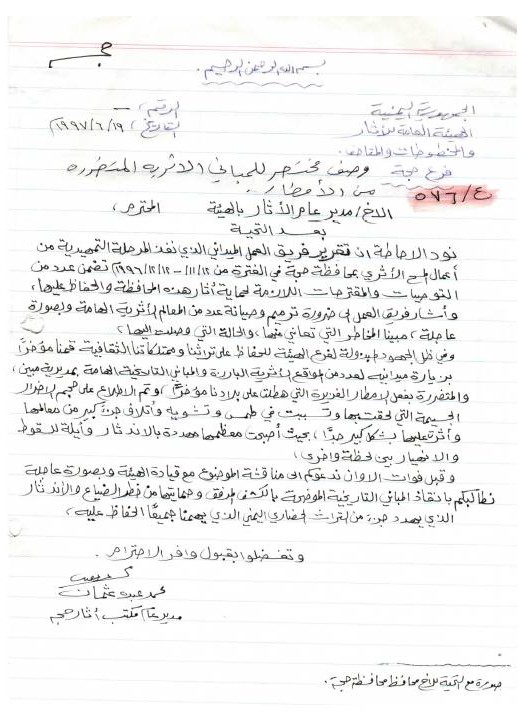 بسم الله الرحمن الرحيم.
الجمهورية اليمنية
الهيئة العامة للآثار
والمخطوطات والمتاحف
فرع حجة
الرقم /
التاريخ / ١٩٩٧/٦/١٩م
٥٧٦/٤
وصف مختصر للمباني الاثرية المتضرره
من الأمطار
الاخ/ مدير عام الآثار بالهيئة المحترم،
بعد التحية
نود الاحاطة ان تقرير فريق العمل الميداني الذي نفذ المرحلة التمهيدية من
أعمال المسح الأثري بمحافظة حجة في الفترة من ١١/١٢ - ١٩٩٦/١٢/١٢م تضمن عدد من
التوصيات والمقترحات اللازمة لحماية آثار هذه المحافظة والحفاظ عليها،
وأشار فريق العمل الى ضرورة ترميم وصيانة عدد من المعالم الأثرية الهامة وبصورة
عاجلة، مبينا المخاطر التي تعاني منها، والحالة التي وصلت اليها.
وفي ظل الجهود المبذولة لفرع الهيئة للحفاظ على تراثنا وممتلكاتنا الثقافية قمنا مؤخرًا
بزيارة ميدانيه لعدد من المواقع الأثرية البارزة والمباني التاريخية الهامة بمديرية مبين،
والمتضررة بفعل الامطار الغزيرة التي هطلت على بلادنا مؤخرًا، وتم الاطلاع على حجم الاضرار
الجسيمة التي لحقت بها وتسببت في طمس وتشويه وأتلاف جزء كبير من معالمها
وأثرت عليها بشكل كبير جدًا، بحيث أصبحت معظمها مهددة بالاندثار وآيلة للسقوط
والانهيار بين لحظة واخرى.
وقبل فوات الاوان ندعوكم الى مناقشة الموضوع مع قيادة الهيئة وبصورة عاجلة
نطالبكم بانقاذ المباني التاريخية الموضحة بالكشف المرفق وحمايتها من خطر الضياع والأندثار
الذي يهدد جزء من التراث الحضاري اليمني الذي يهمنا جميعًا الحفاظ عليه،
وتفضلوا بقبول وافر الاحترام.
محمد عبده عثمان
مدير عام مكتب آثار حجه
صورة مع التحية للاخ محافظ محافظة حجة.